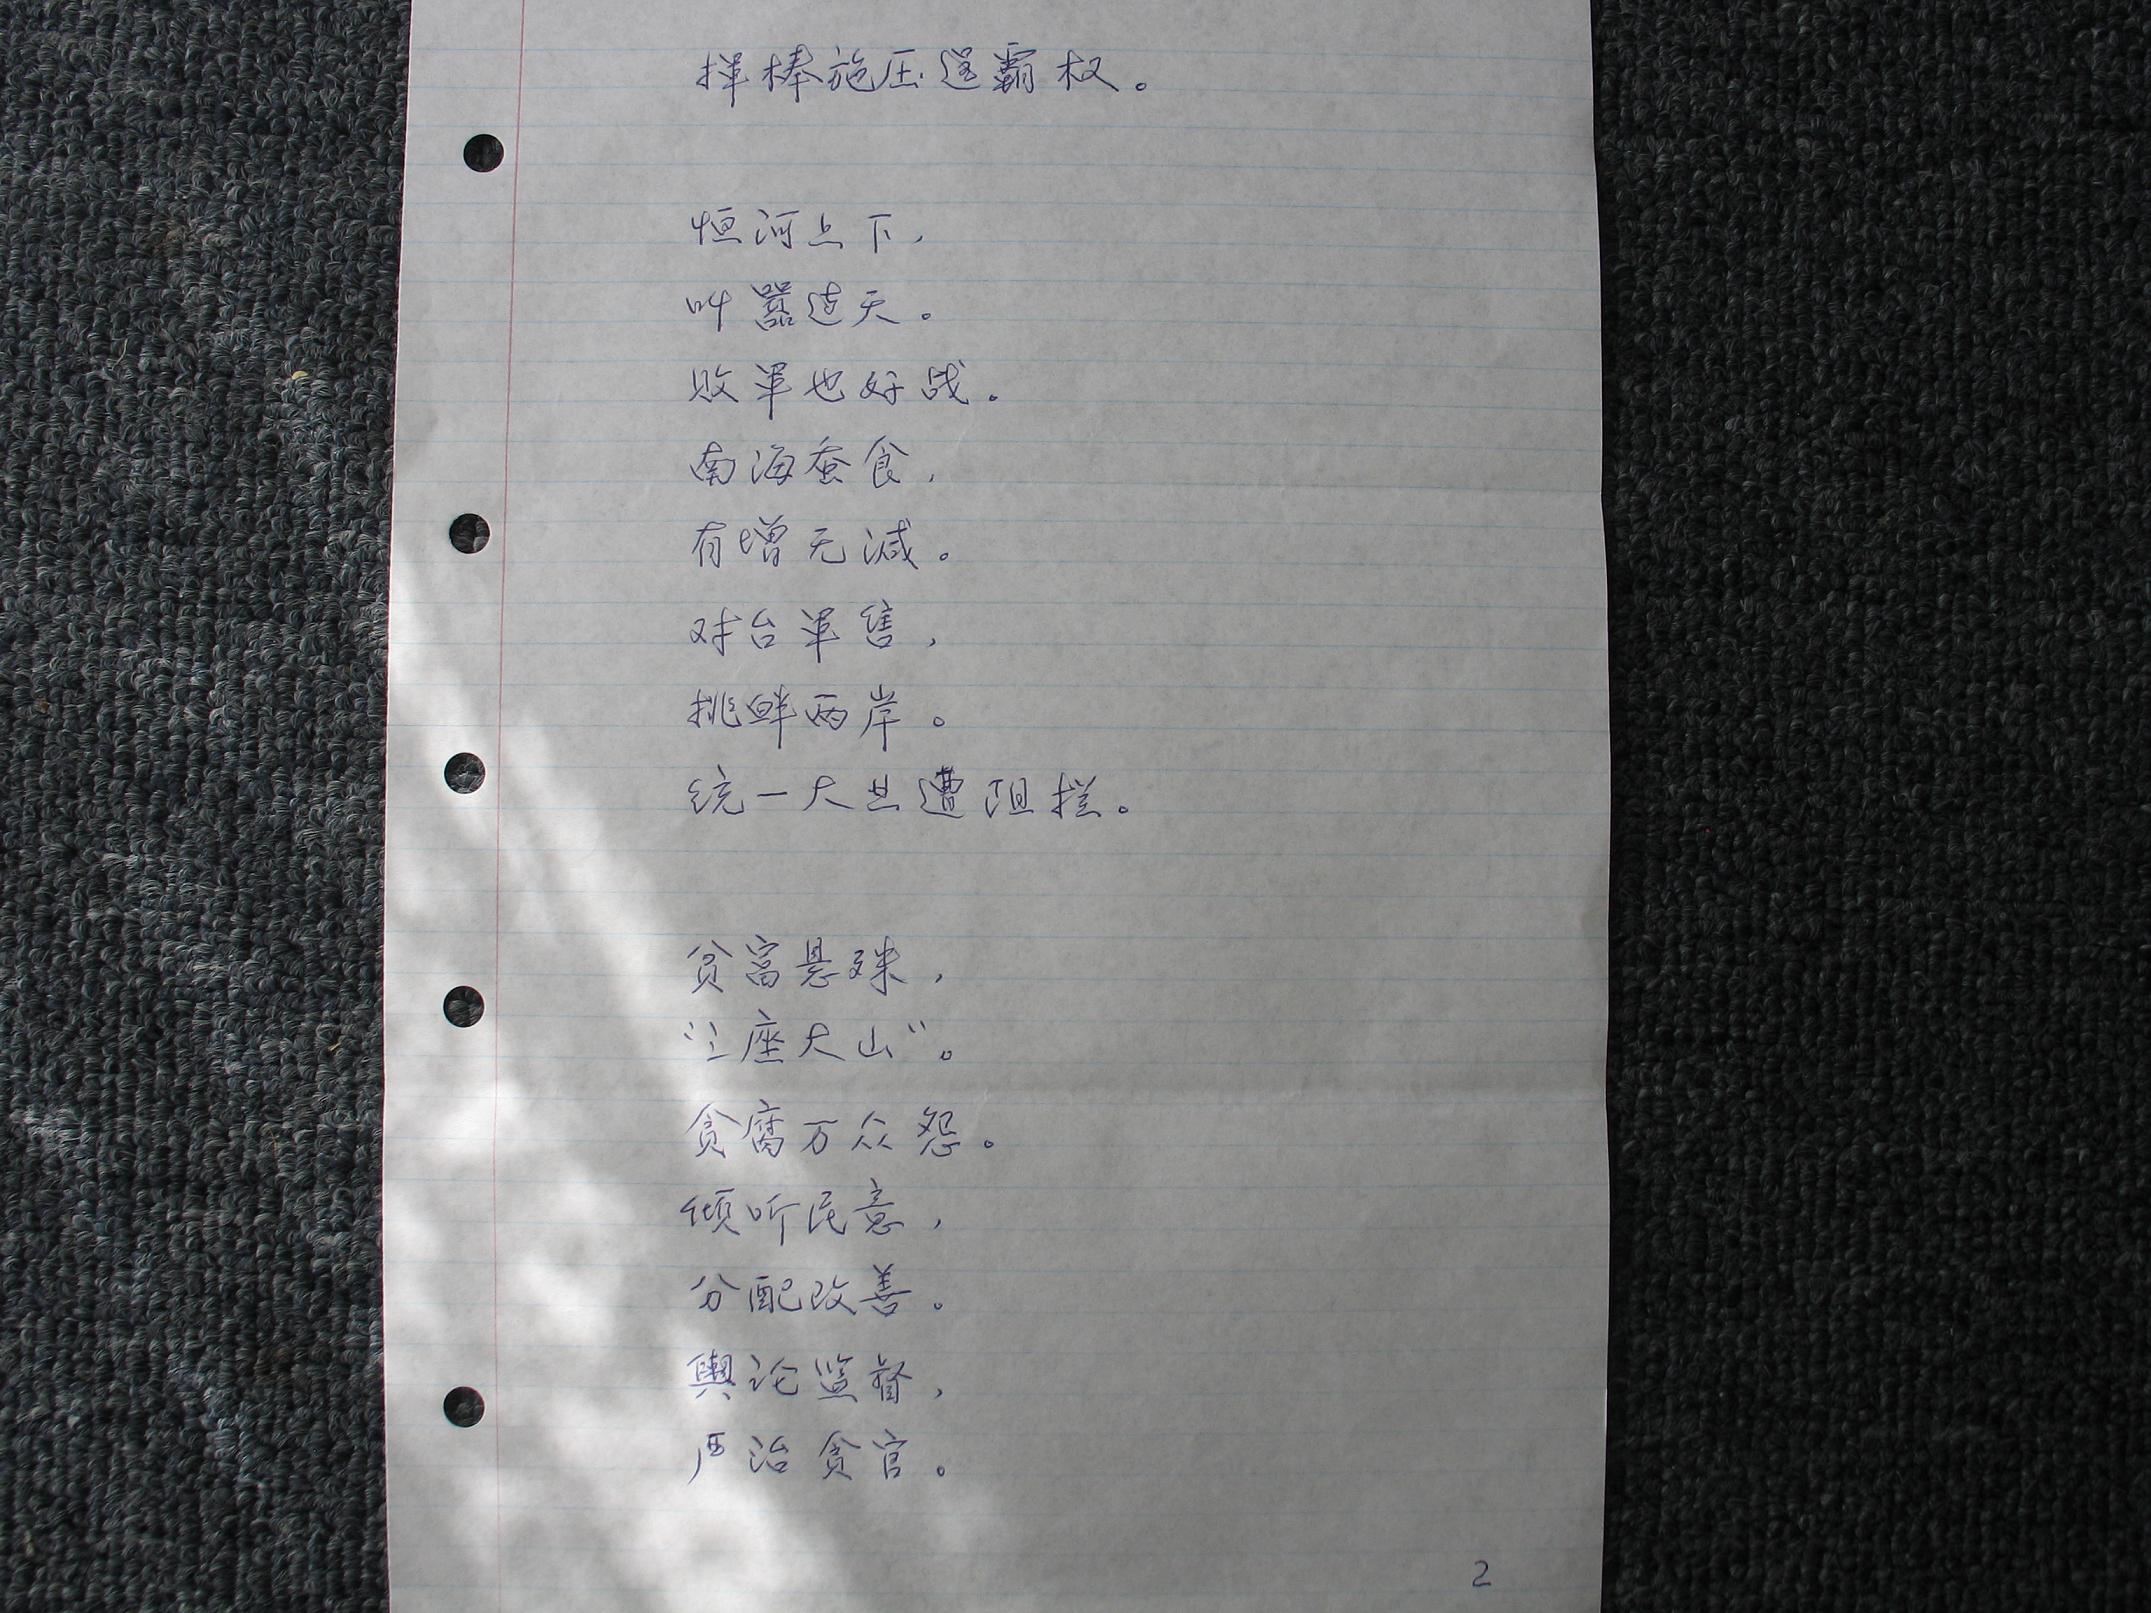 挥棒施压逞霸权。
恒河上下,
叫嚣连天。
败军也好战。
南海蚕食,
有增无减。
对台军售,
挑衅两岸。
统一大业遭阻拦。
贫富悬殊,
“三座大山”。
贪腐万众怨。
倾听民意,
分配改善。
舆论监督,
严治贪官。
2